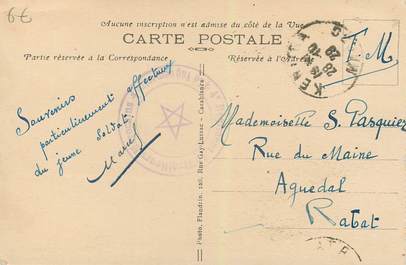 6€
Aucune inscription n'est admise du côté de la Vue
CARTE POSTALE
Partie réservée à la Correspondance
Réservée à l'Adresse
KENITRA
F.M
Souvenirs
particulièrement affectueux
du jeune soldat
Marcel
Mademoiselle S. Pasquier
Rue du Maine
Aguedal
Rabat
Photo. Flandrin, 128, Rue Gay-Lussac - Casablanca